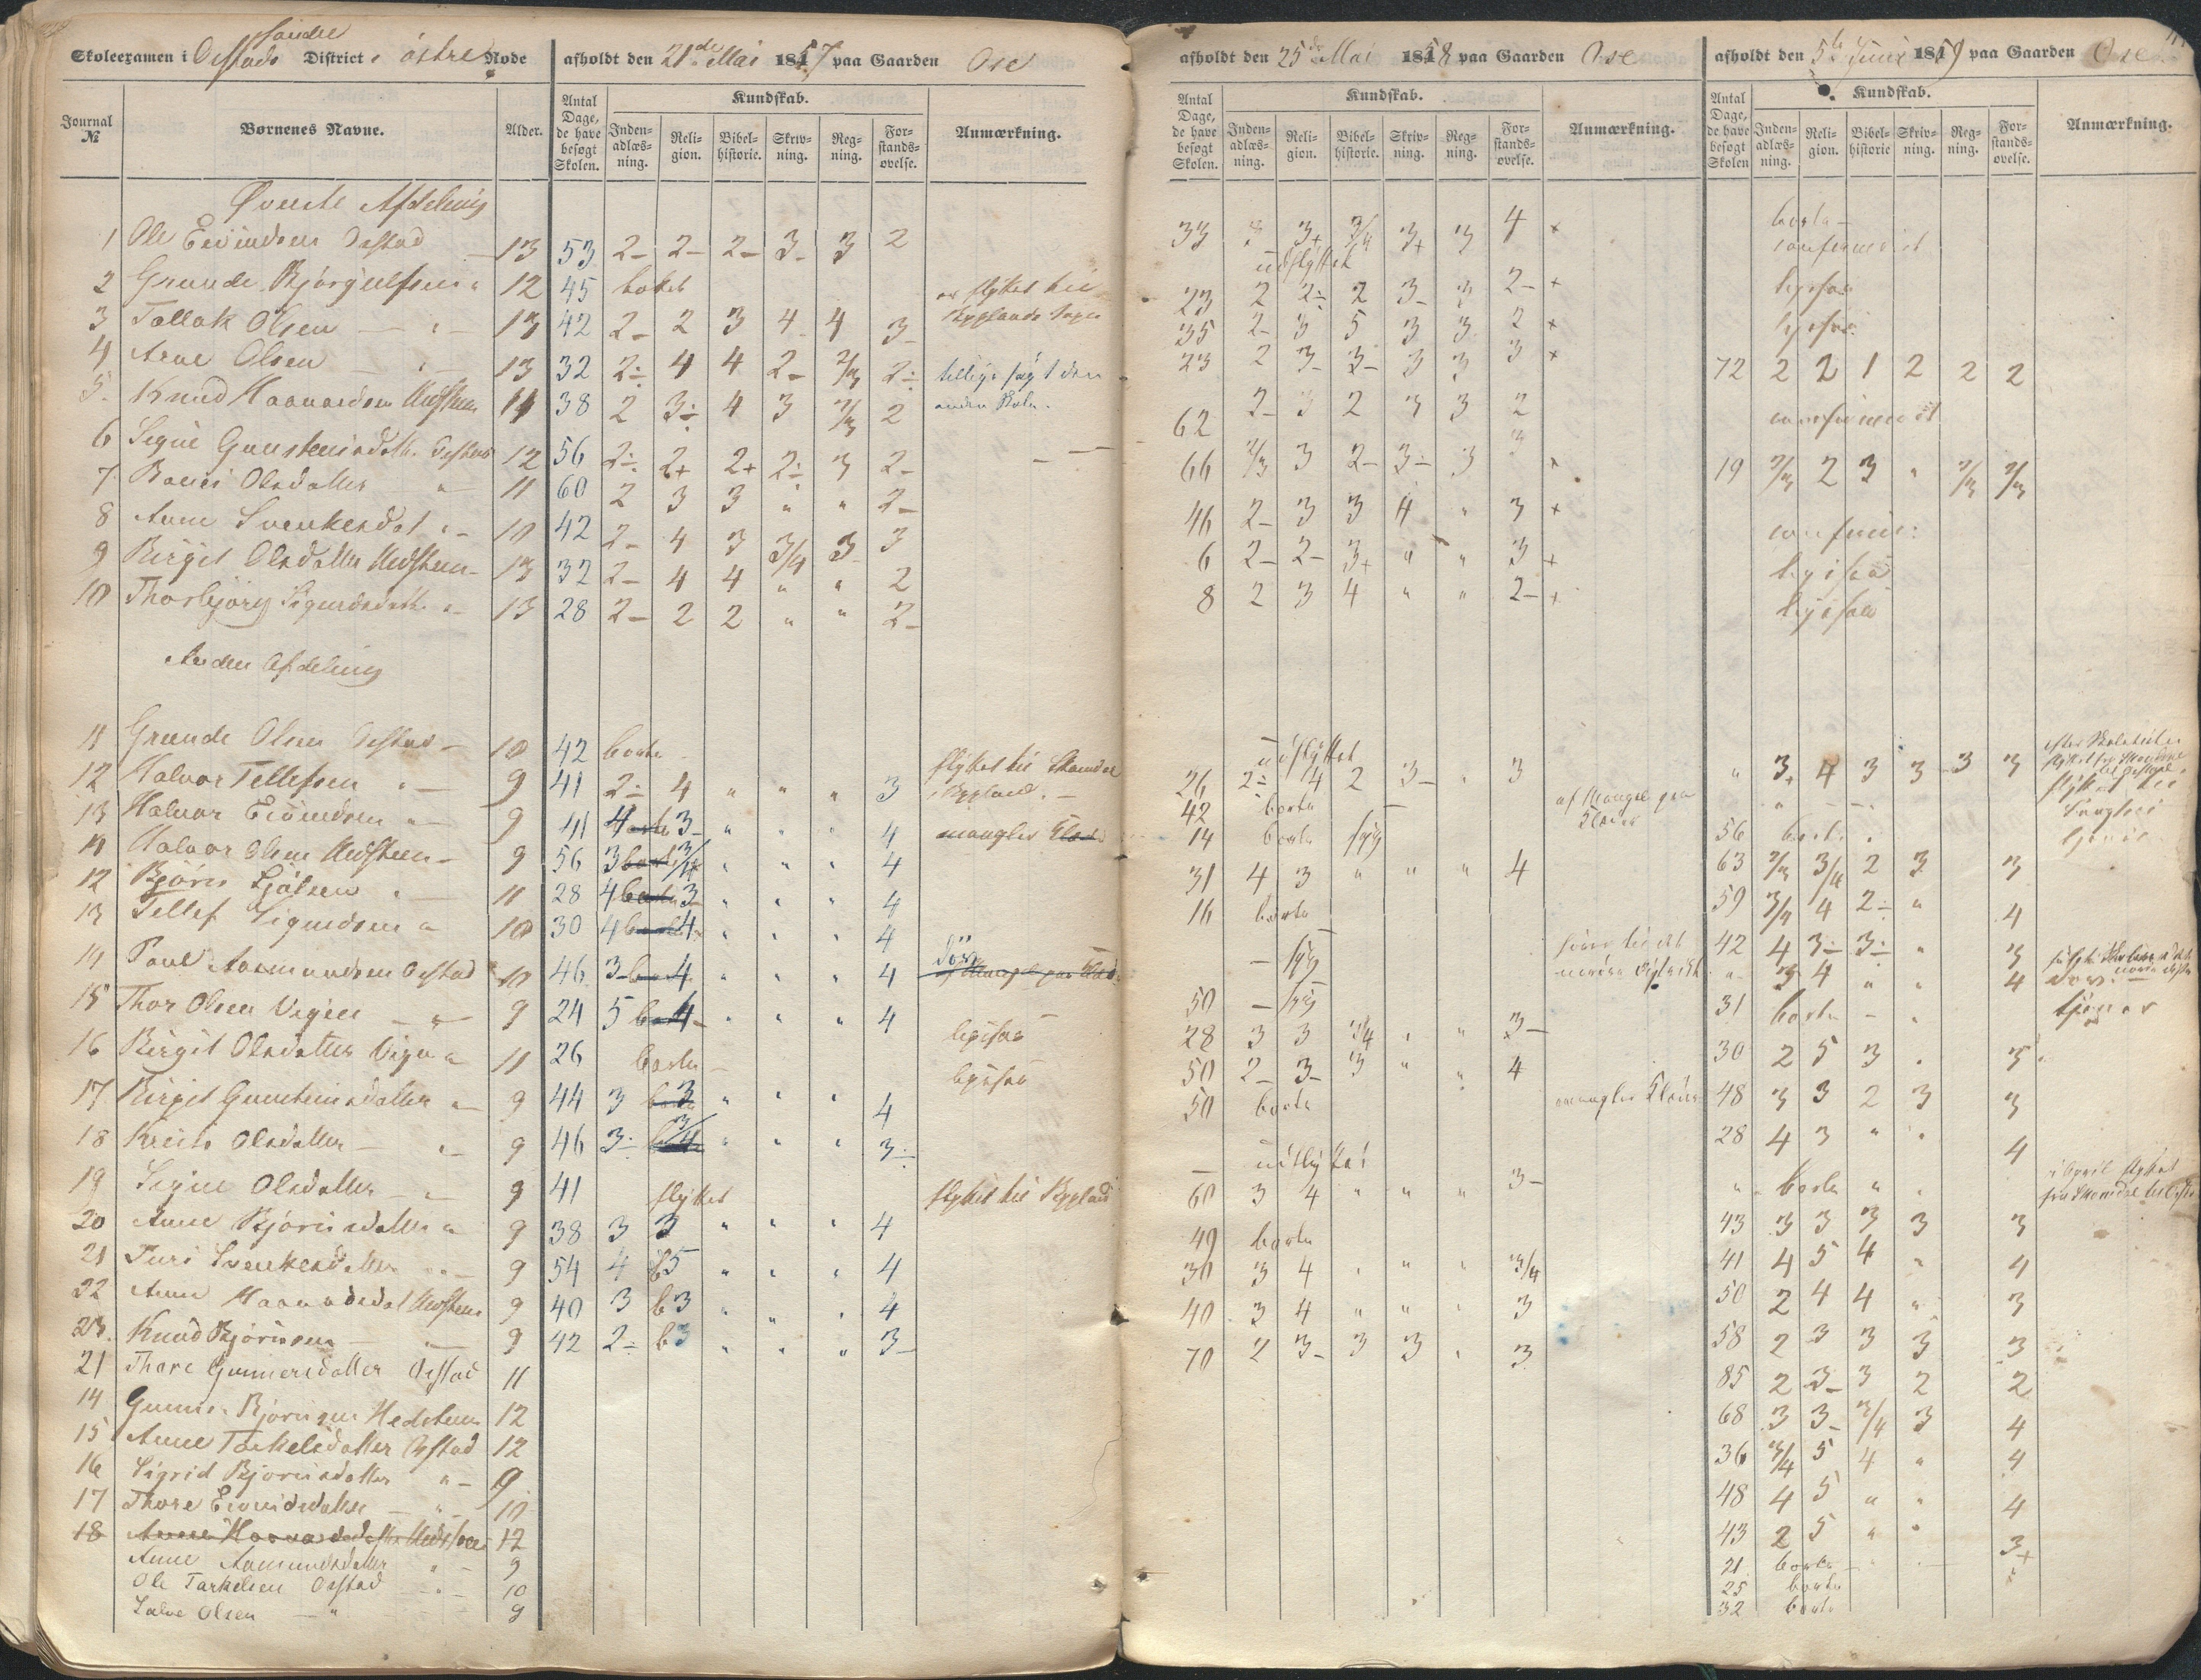 søndre
Skoleexamen i Østads District, østre Rode afholdt den 21de Mai 1857 paa Gaarden Ose
Journal № Børnenes Navne. Alder. Antal Dage, de have besøgt Skolen. Kundskab. Indenadlæsning. Religion. Bibelhistorie. Skrivning. Regning. Forstandsøvelse. Anmærkning.
Øverste Afdeling
1 Ole Eivindsen Østad 13 53 2- 2- 2- 3- 3 2
2 Grunde Bjørgulfsen " 12 45 er flyttet til
3 Tallak Olsen - " - 13 42 2- 2 3 4 4 3-
4 Arne Olsen " 13 32 2÷ 4 4 2- 2/3 2÷ tillige søgt den
5. Knud Haavardsen Hedsteen 14 38 2 3÷ 4 3 2/3 2 anden Skole.
6 Signe Gunsteinsdatter Østad 12 56 2÷ 2+ 2+ 2÷ 3 2-
7 Olsdatter " 11 60 2 3 3 " " 2-
8 Anne Svenkesdat " 10 42 2- 4 3 3/4 3 3
9 Birgit Olsdatter Hedsteen 13 32 2- 4 4 " " 2
10 Thorbjørg Sigurdsdatter " 13 28 2- 2 2 " " 2-
Anden Afdeling
11 Grunde Olsen Østad - 10 42 borte
12 Halvor Tellefsen " 9 41 2÷ 4 " " " 3 flyttet til i Bygland.
13 Halvor Eivindsen " 9 41 4 borte 3- " " " 4 mangler Klæder
11 Halvor Olsen Hedsteen 9 56 3 borte 3/4 " " " 4
12 Bjørn " 11 28 4 borte 3- " " " 4
13 Tellef Sigurdsen " 10 30 4 borte 4 " " " 4
14 Paul Aasmundsen Østad 10 46 3- borte 4 " " " 4 døv af Mangel paa Klæder
15 Thor Olsen Vigen " 9 24 5 borte 4- " " " 4
16 Birgit Olsdatter Vigen " 11 26 borte ligesaa
17 Birgit Gunsteinsdatter " 9 44 3 borte 3 " " " 4 ligesaa
18 Olsdatter - " 9 46 3÷ borte 3/4 " " " 3÷
19 Signe Olsdatter - " 9 41 flyttet flyttet til Bygland
20 Anne Bjørnsdatter " 9 38 3 3 " " " 4
21 Turi Svenkesdatter " 9 54 4 5 " " " 4
22 Anne Haavardsdat Hedsteen 9 40 3 b3 " " " 4
23. Knud Bjørnsen - " 9 42 2÷ b3 " " " 3-
21 Thore Gunnersdatter Østad 11
14 Gunner Bjørnsen Hedsteen 12
15 Anne Tarkelsdatter Østad 12
16 Sigrid Bjørnsdatter " 9
17 Thore Eivindsdatter - " 10
18 Anne Haavardsdatter Hedsteen 12
Anne Aamundsdatter " 9
Ole Tarkelsen Østad - " 10
Salve Olsen - " 9
afholdt den 25de Mai 1858 paa Gaarden Ose
Antal Dage, de have besøgt Skolen. Kundskab. Indenadlæsning. Religion. Bibelhistorie. Skrivning. Regning. Forstandsøvelse. Anmærkning.
33 3+ 3/4 3+ 3 4 +
udflyttet
23 2 2÷ 2 3- 3 2- +
35 2- 3 5 3 3 2 +
23 2 3- 3- 3 3 3 +
62 2- 3 2 3 3 2
66 2/3 3 2- 3- 3
46 2- 3 3 4 " 3 +
6 2- 2- 3+ " " 3 +
8 2 3 4 " " 2- +
udflyttet
26 2÷ 4 2 3- " 3
42 borte - af Mangel paa Klæder
14 borte syg
31 4 3 " " " 4
16 borte
- syg nordre District
50 - syg
28 3 3 3/4 " " 3-
50 2- 3- 3 " " 4
50 borte mangler Klæder
- udflyttet
60 3 4 " " " 3-
49 borte
30 3 4 " " " 3/4
40 3 4 " " " 3
70 2 3- 3 3 " 3
afholdt den 5te Juni 1859 paa Gaarden Ose
Antal Dage, de have besøgt Skolen Kundskab. Indenadlæsning. Religion. Bibelhistorie Skrivning. Regning. Forstandsøvelse. Anmærkning.
borte -
confirmeret
ligesaa
ligesaa
72 2 2 1 2 2 2
confirmeret
19 2/3 2 3 " 2/3 2/3
confirm:
ligesaa
ligesaa
" 3+ 4 3 3 3 3 efter Skoletiden
" - - flyttet til
56 borte "
63 2/3 3/4 2 3 3
59 3/4 4 2÷ " 4
42 4 3÷ 3÷ " 3
" 3 4 " " 4 døv. -
31 borte - " tjener
30 2 5 3 " 3
48 3 3 2 3 3
28 4 3 " " 4
" borte " " i April flyttet
43 3 3 3 3 3
41 4 5 4 " 4
50 2 4 4 " 3
58 2 3 3 3 3
85 2 3- 3 2 2
68 3 3- 3/4 3 4
36 3/4 5 4 " 4
48 4 5 " " 4
43 2 5 " " 3+
21 borte -
25 borte
32 borte